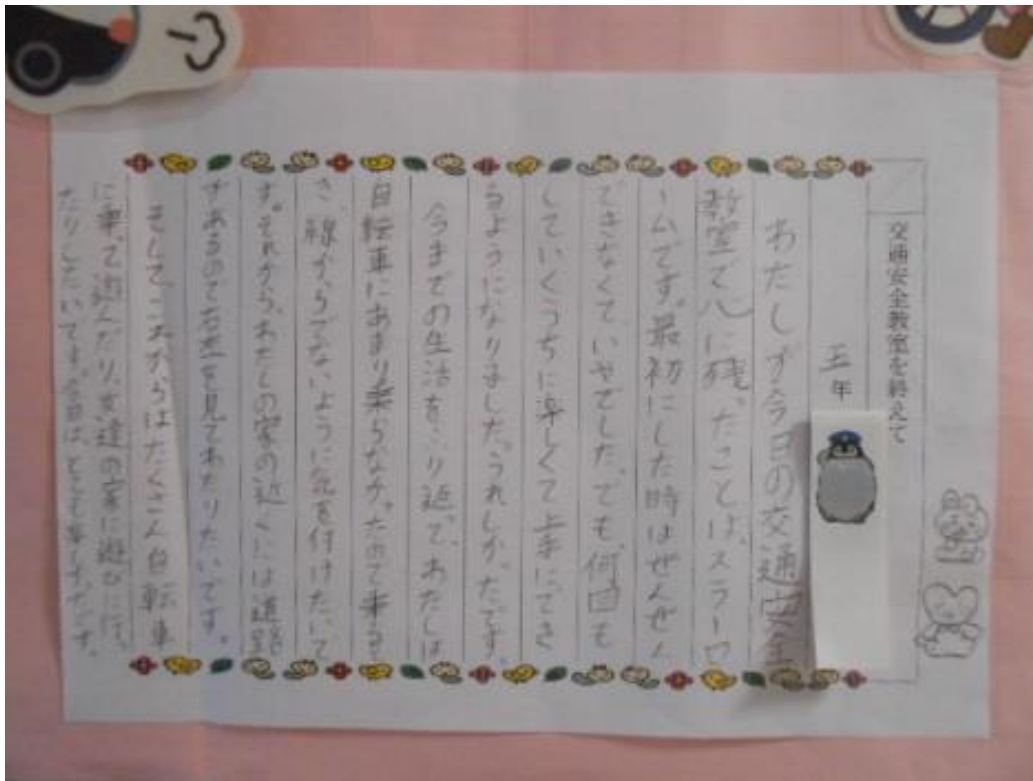 交通安全教室を終えて
五年
わたしが今日の交通安全
教室で心に残ったことは、スラロ
ームです。最初にした時はぜんぜん
できなくていやでした。でも、何回も
していくうちに楽しくて上手にでき
るようになりました。うれしかったです。
今までの生活をふり返って、わたしは
自転車にあまり乗らなかったので乗ると
き、線からでないように気を付けたいで
す。それから、わたしの家の近くには道路
があるので左右を見てわたりたいです。
そして、これからはたくさん自転車
に乗って遊んだり、友達の家に遊びに行っ
たりしたいです。今日は、とても楽しかったです。